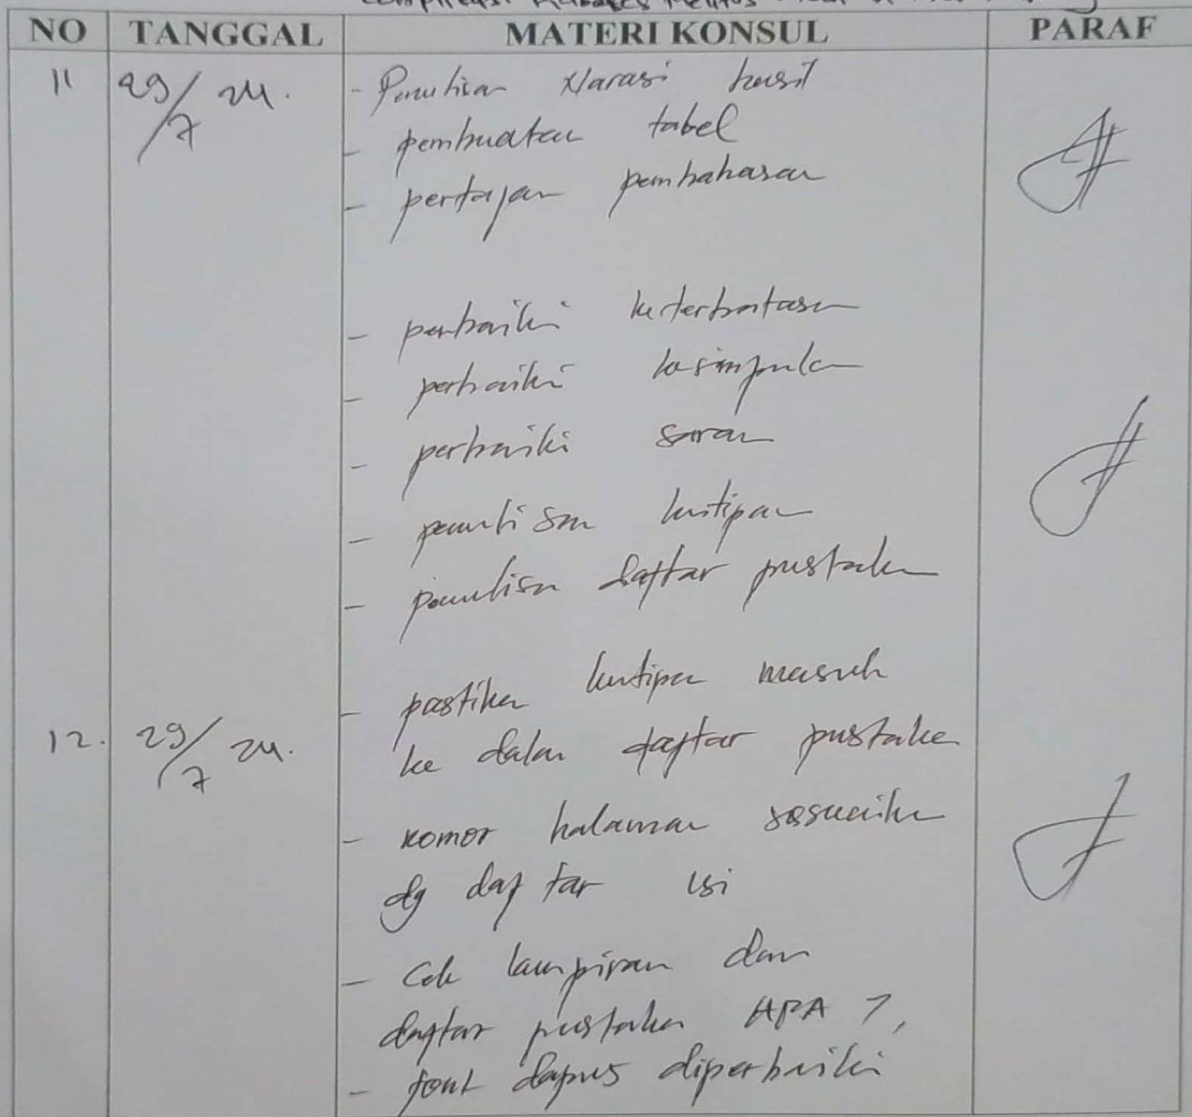 Komplikasi Diabetes Melitus
NO TANGGAL MATERI KONSUL PARAF
11 29/7 24. - Penulisan Narasi hasil
- pembuatan tabel
- pertajam pembahasan
- perbaiki keterbatasan
- perbaiki kesimpulan
- perbaiki saran
- penulisan kutipan
- penulisan daftar pustaka
- pastikan kutipan masuk
12. 29/7 24. ke dalam daftar pustaka
- nomor halaman sesuaikan
dg daftar isi
- Cek lampiran dan
daftar pustaka APA 7,
- font dapus diperbaiki